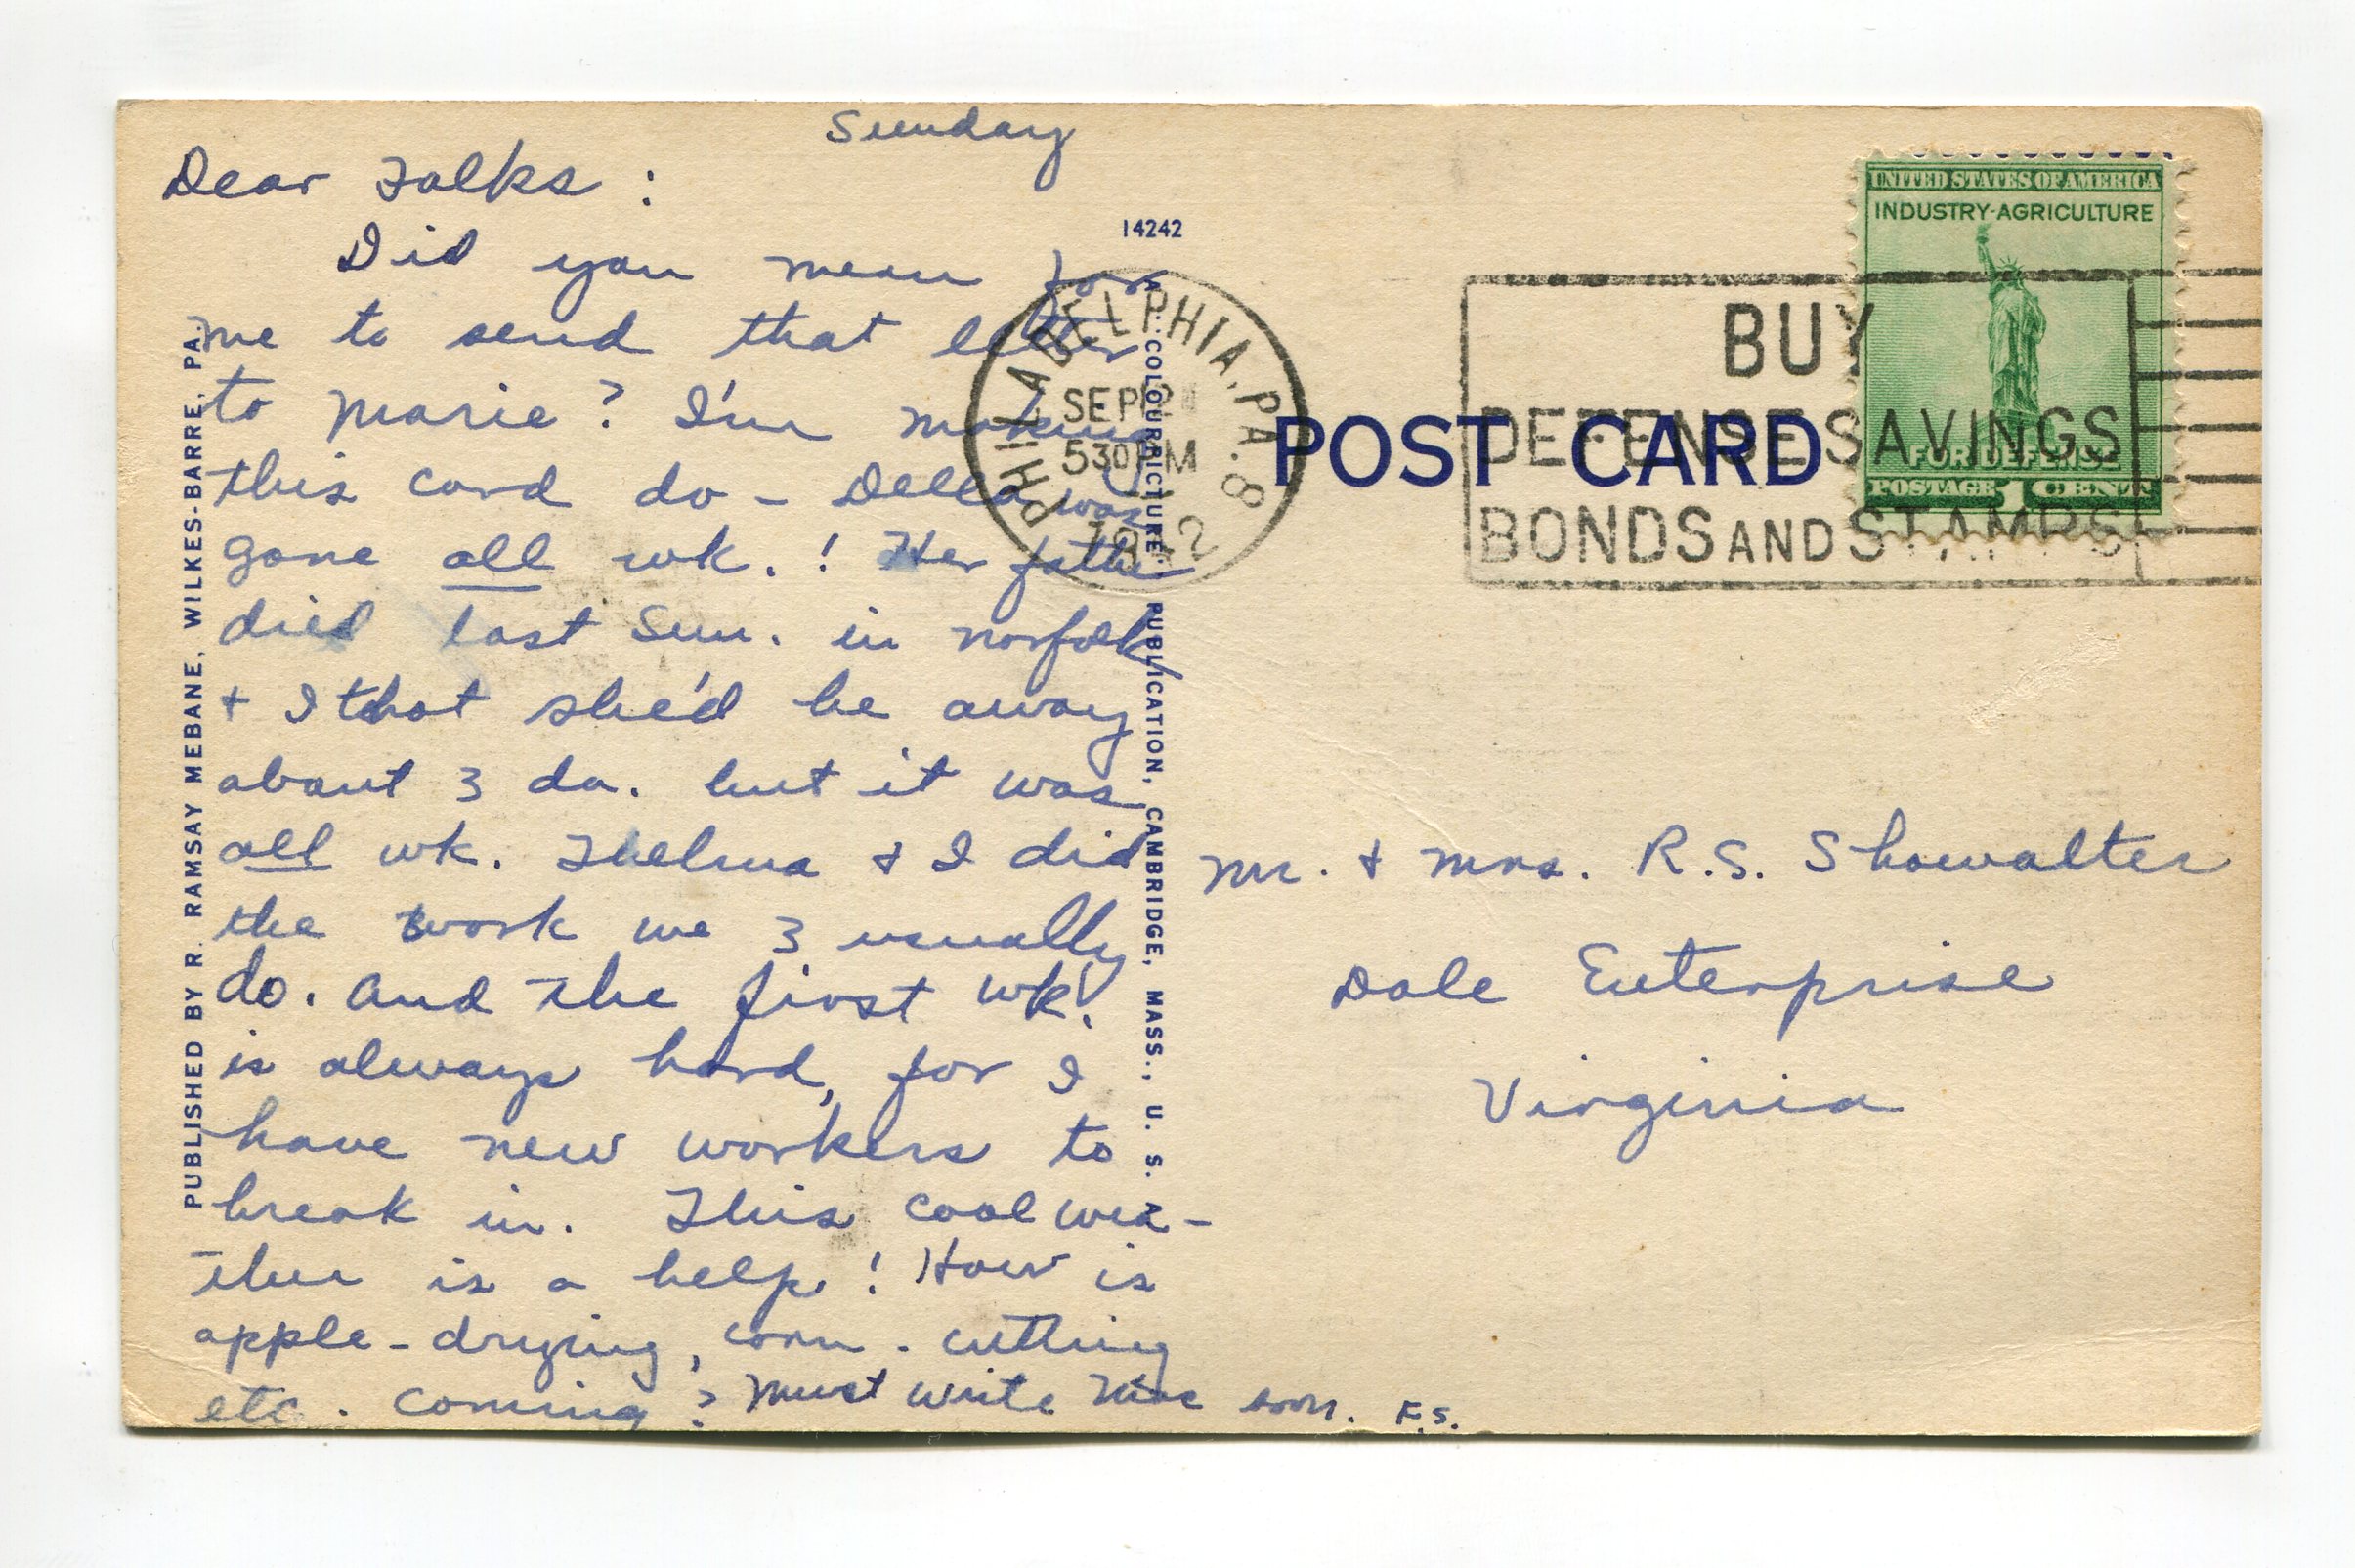 Sunday
Dear Folks :
Did you mean for
me to send that letter
to Marie? I'm making
this card do - Della was
gone all wk. ! Her father
died last Sun. in Norfolk
+ I thot she'd be away
about 3 da. but it was
all wk. Thelma + I did
the work we 3 usually
do. And the first wk.
is always hard, for I
have new workers to
break in. This cool wea-
ther is a help! How is
apple-drying, corn-cutting
etc. coming? Must write soon. F.S.
PUBLISHED BY R. RAMSAY MEBANE, WILKES-BARRE, PA.
14242
A "COLOURPICTURE" PUBLICATION, CAMBRIDGE, MASS., U. S. A.
PHILADELPHIA, PA. 8
SEP
530 PM
1942
POST CARD
BUY
DEFENSE SAVINGS
BONDS AND STAMPS
UNITED STATES OF AMERICA
INDUSTRY-AGRICULTURE
FOR DEFENSE
POSTAGE 1 CENT
Mr. + Mrs. R.S. Showalter
Dale Enterprise
Virginia